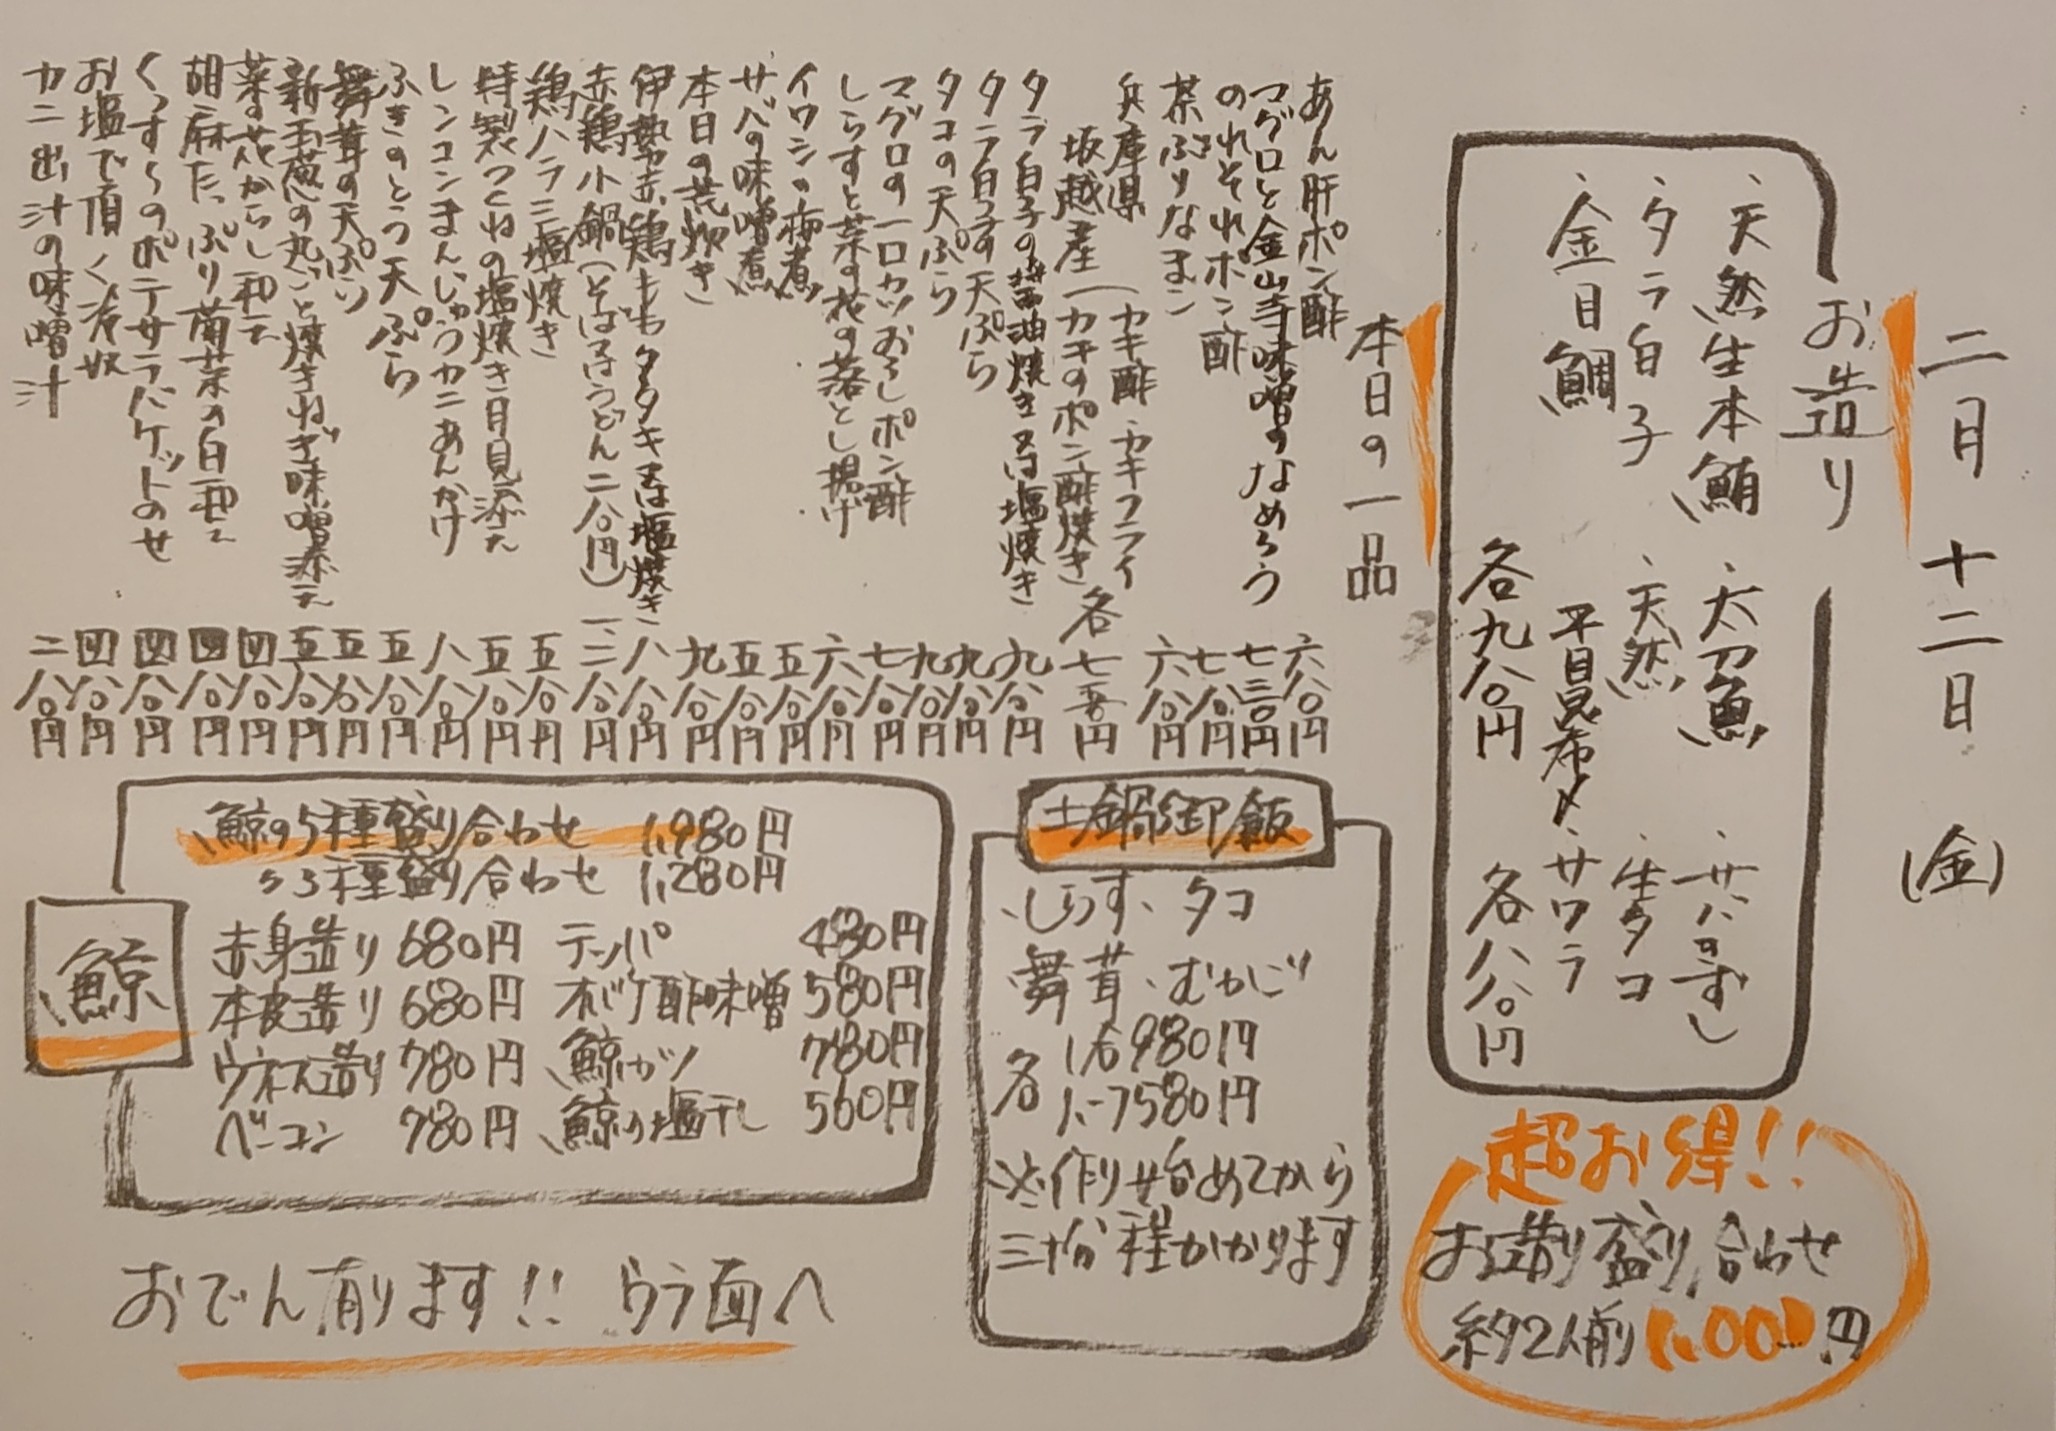 二月十二日(金)
お造り
・天然生本鮪 ・太刀魚 ・サバのすし
・タラ白子 ・天然平目昆布〆 ・生タコ
・金目鯛 ・サワラ
各九八〇円 各八八〇円
超お得!!
お造り盛り合わせ
約2人前1,000円
本日の一品
あん肝ポン酢 六八〇円
マグロと金山寺味噌のなめろう 七三〇円
のれそれポン酢 七八〇円
茶ぶりなまこ 六八〇円
兵庫県坂越産(カキ酢・カキフライ
カキのポン酢焼き 各七五〇円
タラ白子の醤油焼き又は塩焼き 九八〇円
タラ白子の天ぷら 九八〇円
タコの天ぷら 九八〇円
マグロの一口カツおろしポン酢 七八〇円
しらすと菜の花の落とし揚げ 六八〇円
イワシの梅煮 五八〇円
サバの味噌煮 五八〇円
本日の荒炊き 九八〇円
伊勢赤鶏ももタタキ又は塩焼き 八八〇円
赤鶏小鍋(そば又はうどん二八〇円) 一、二八〇円
鶏ハラミ塩焼き 五八〇円
特製つくねの塩焼き月見添え 五八〇円
レンコンまんじゅうカニあんかけ 八八〇円
ふきのとう天ぷら 五八〇円
舞茸の天ぷら 五八〇円
新玉葱の丸ごと焼きねぎ味噌添え 五八〇円
菜の花からし和え 四八〇円
胡麻たっぷり菊菜の白和え 四八〇円
くっす〜のポテサラバケットのせ 四八〇円
お塩で頂く冷奴 四八〇円
カニ出汁の味噌汁 二八〇円
土鍋御飯
・しらす・タコ
舞茸・むかご
各 1合980円
1.5合1,580円
※作り始めてから
三十分程かかります
鯨
鯨の5種盛り合わせ 1,980円
〃3種盛り合わせ 1,280円
赤身造り 680円 テッパ 480円
本皮造り 680円 オバケ酢味噌 580円
ウネス造り 780円 鯨カツ 780円
ベーコン 780円 鯨の塩干し 560円
おでん有ります!! ウラ面へ